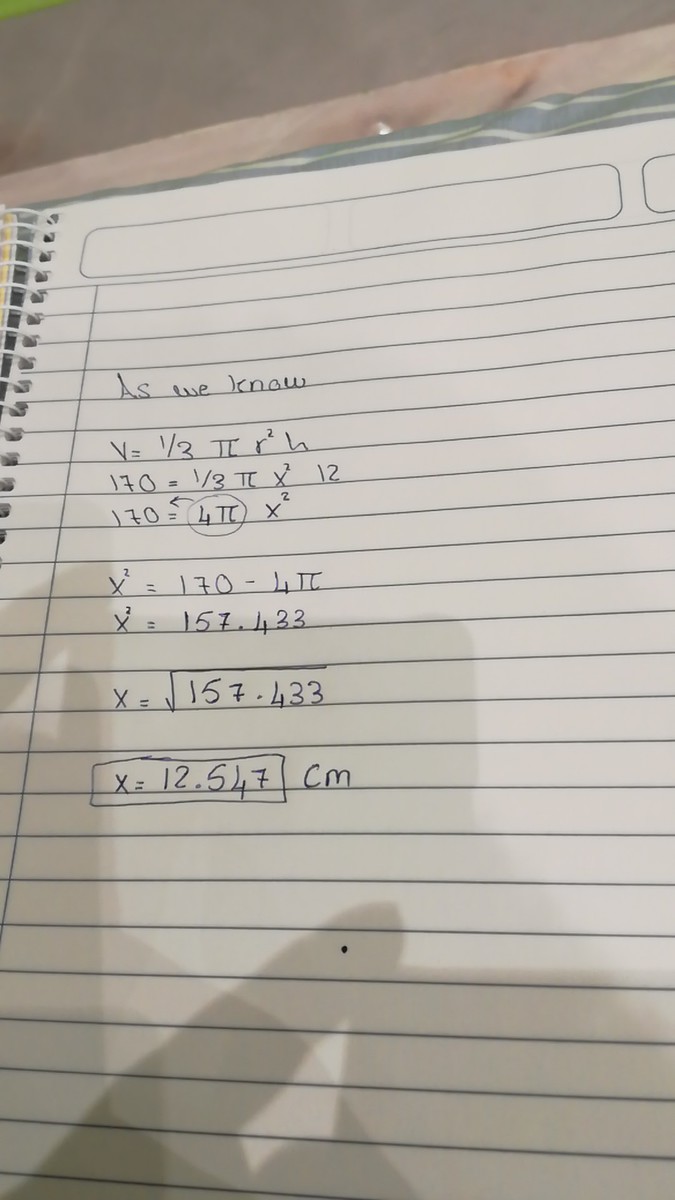 As we know
V= 1/3 π r² h
170 = 1/3 π x² 12
170 = 4π x²
x² = 170 - 4π
x² = 157.433
x = √157.433
x = 12.547 cm